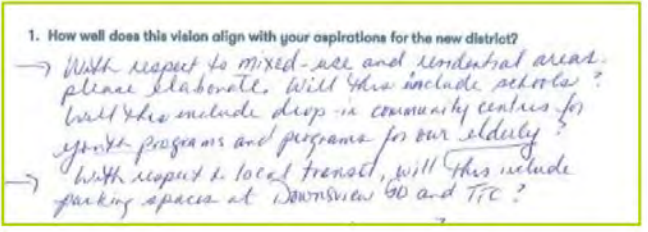 1. How well does this vision align with your aspirations for the new district?
→ With respect to mixed-use and residential areas.
please elaborate. Will this include schools ?
Will this include drop-in community centres for
youth programs and programs for our elderly ?
→ With respect to local transit, will this include
parking spaces at Downsview GO and TTC ?